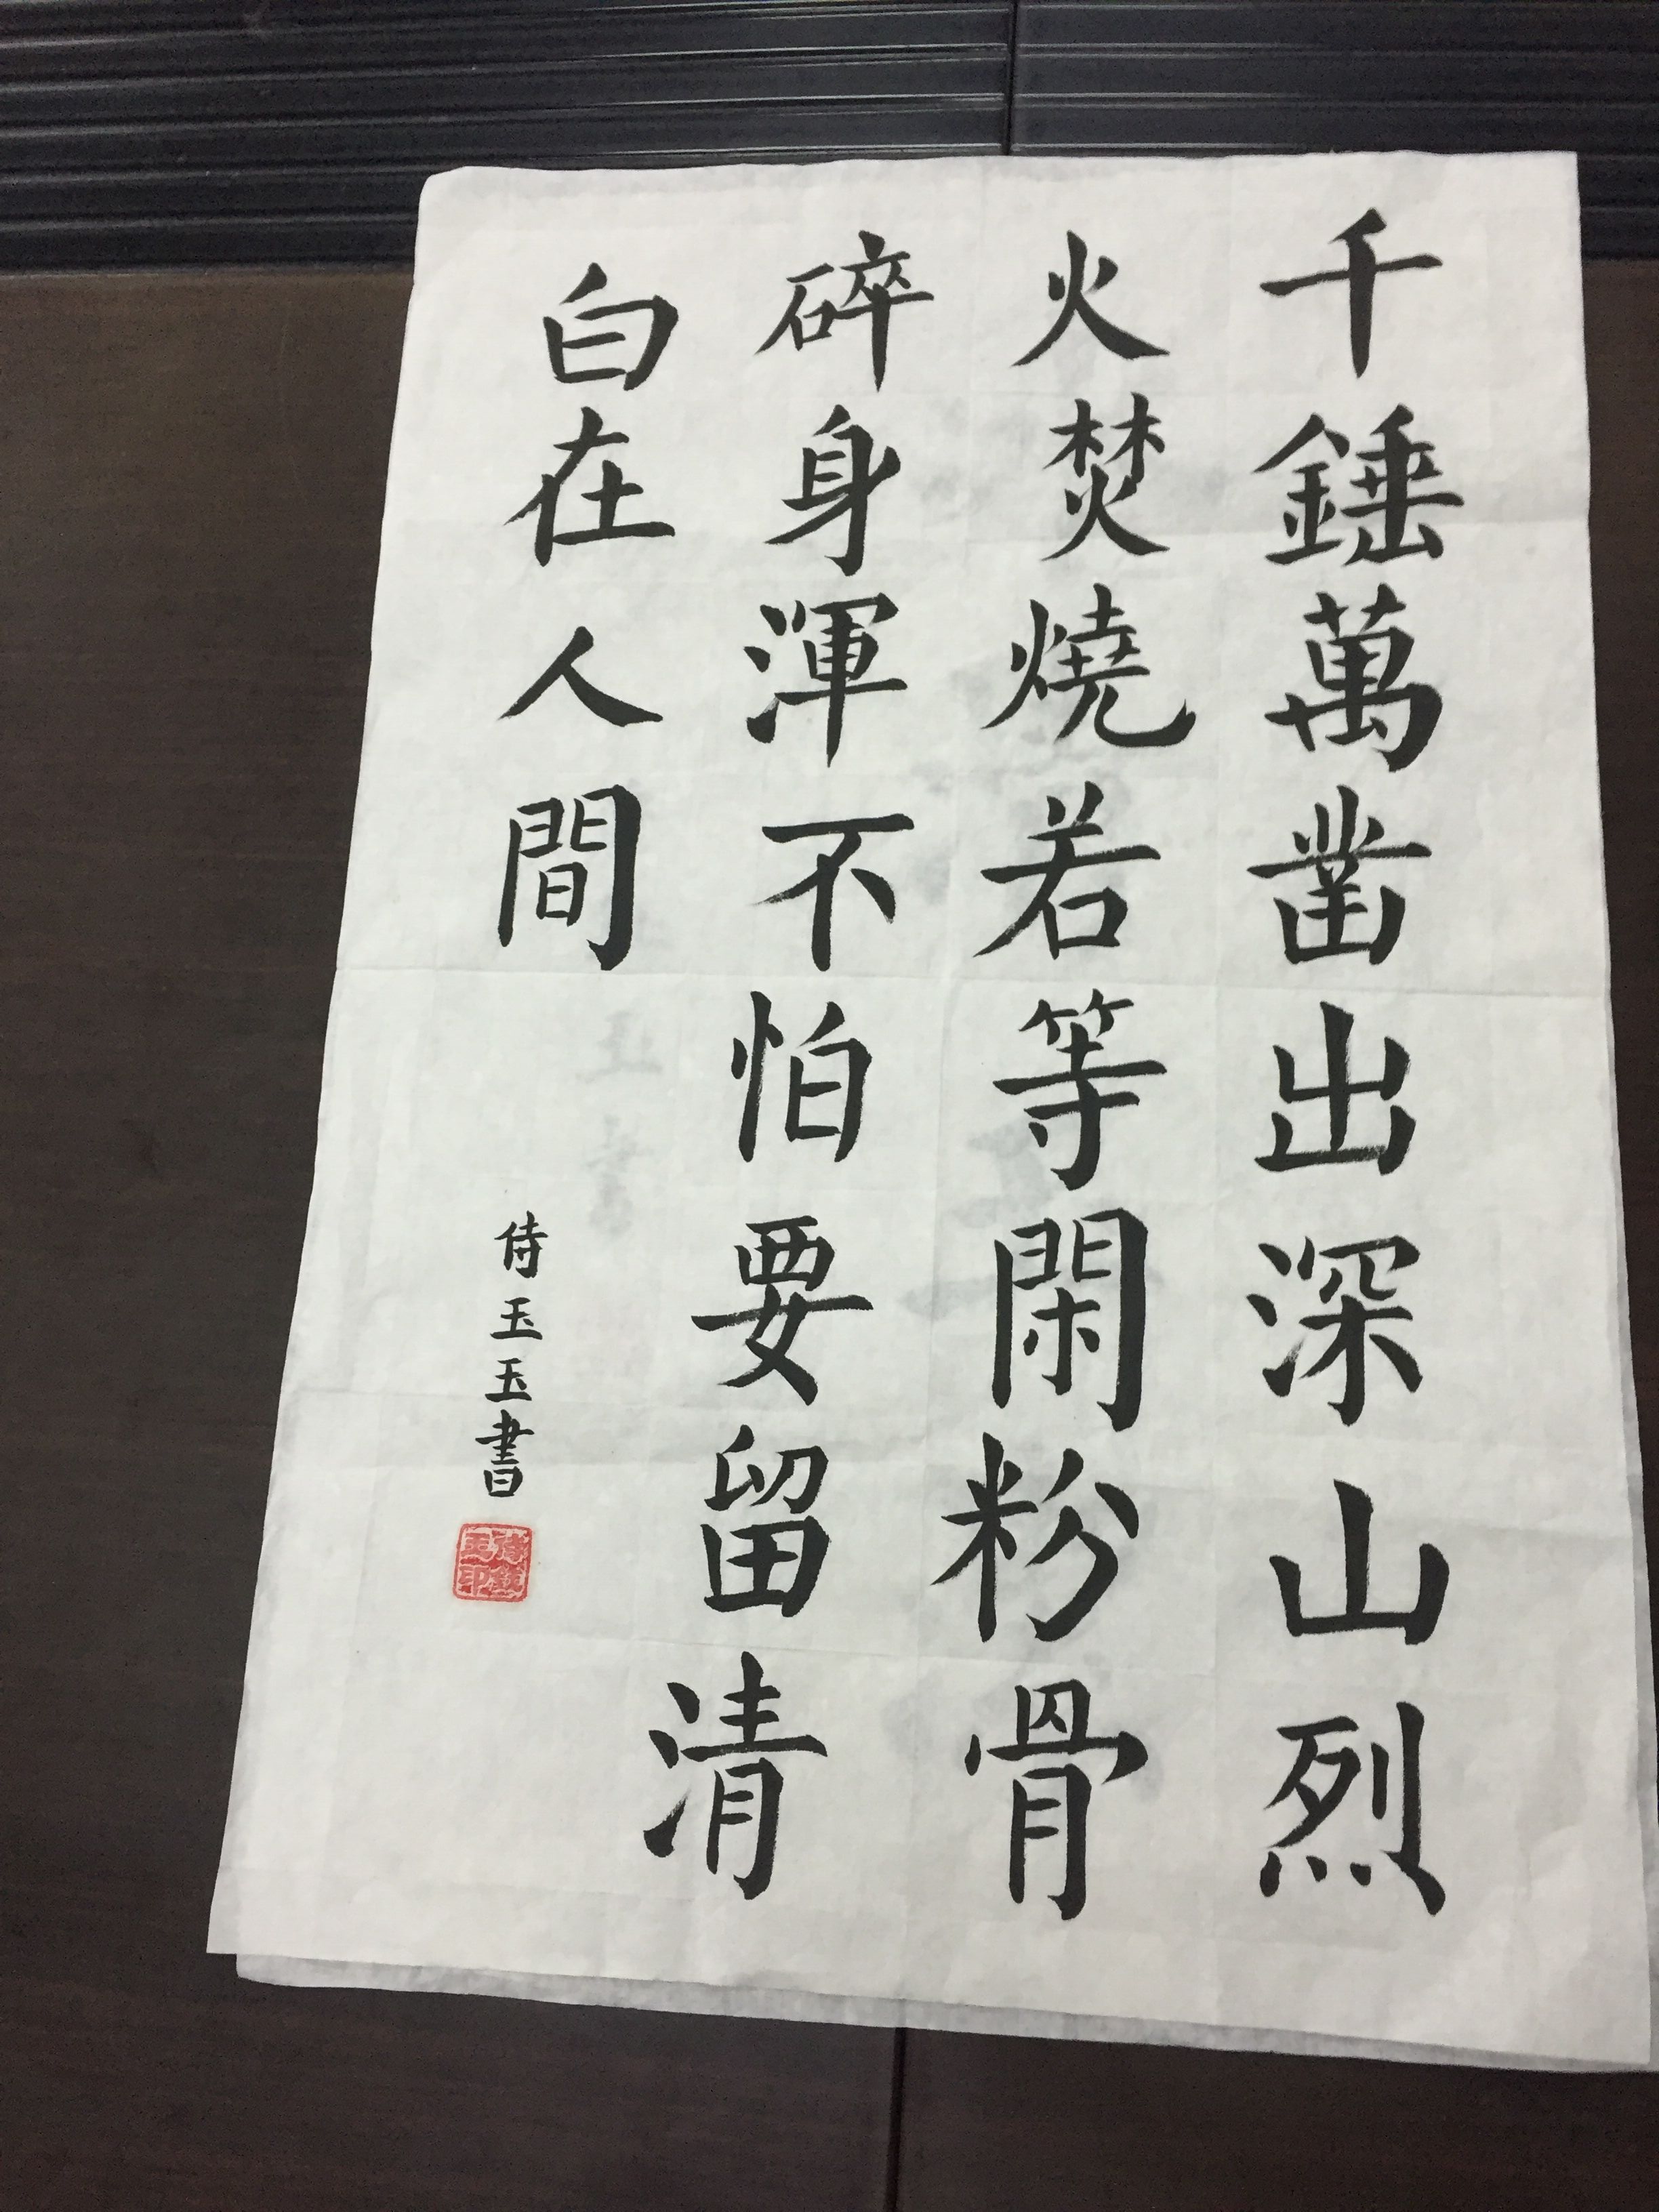 千錘萬凿出深山烈
火焚燒若等閑粉骨
碎身渾不怕要留清
白在人間
侍玉玉書